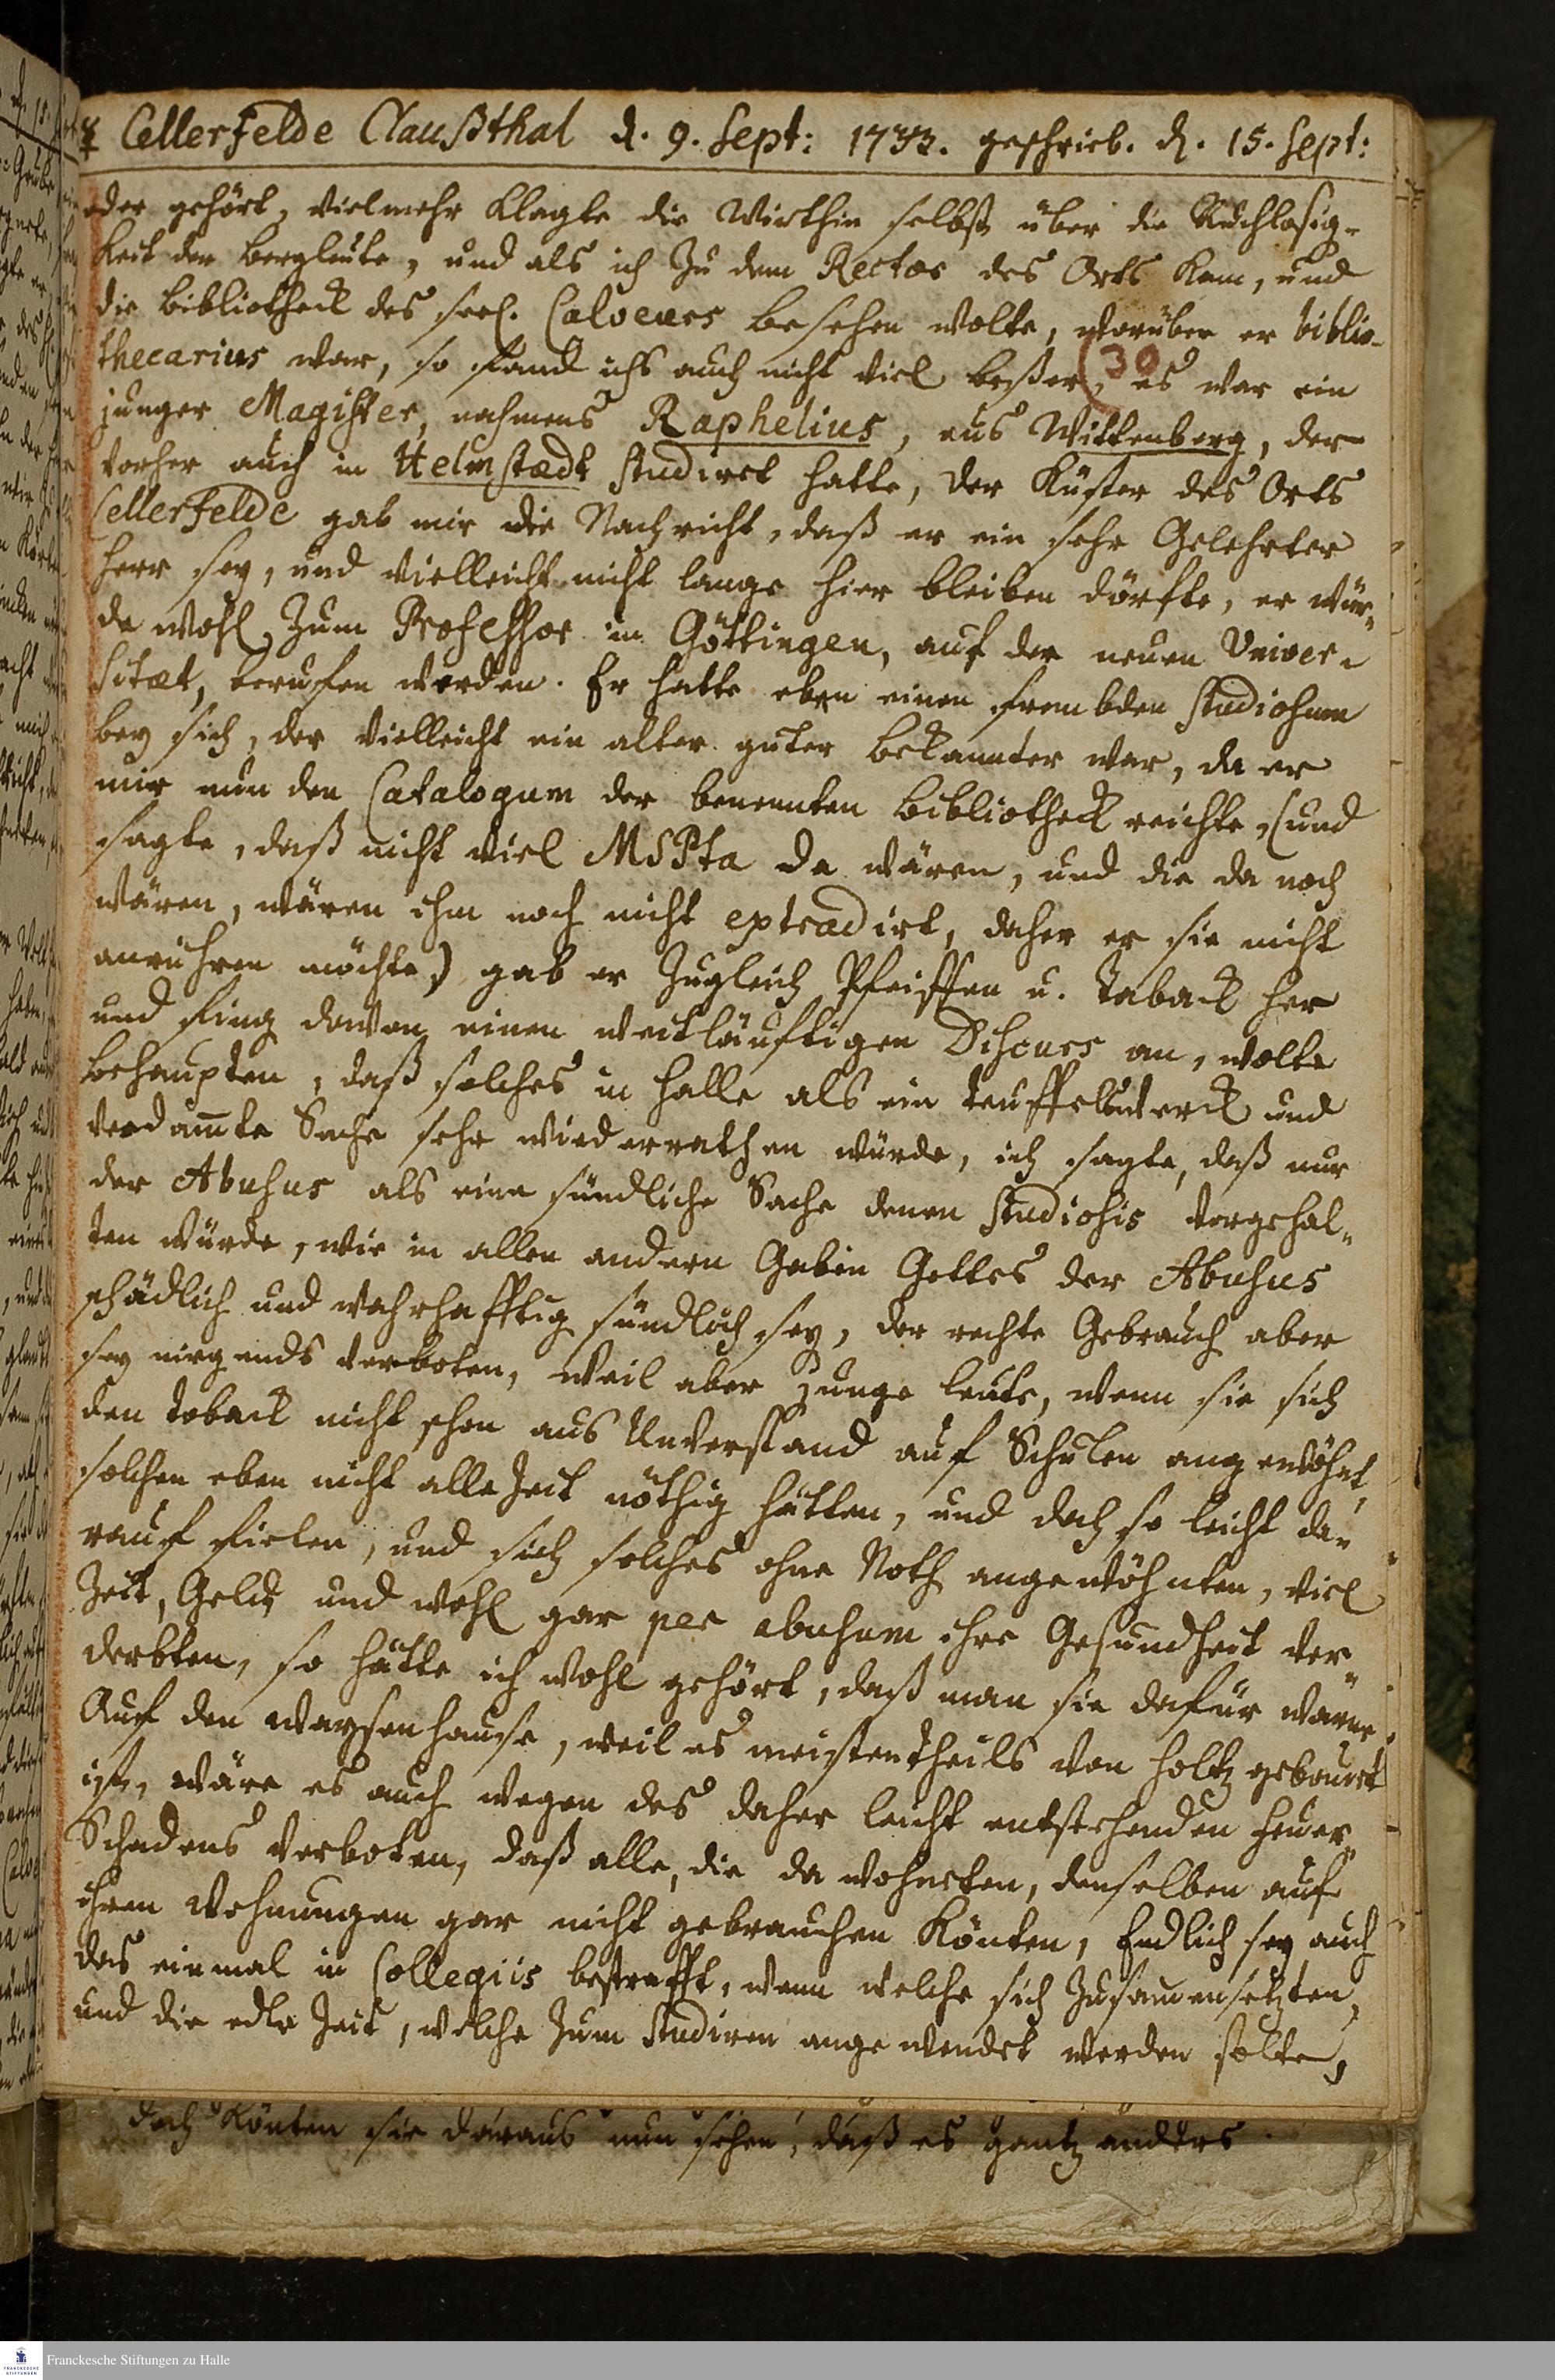 ☿ Cellerfelde Claußthal d. 9. Sept: 1733. geschrieb. d. 15. Sept:
oder gehört, vielmehr klagte die Wirthin selbst über die Ruchlosig-
keit der Bergleute, und als ich zu dem Rector des Orts kam, und
die Bibliotheck des seel. Calvoeurs besehen wolte, worüber er biblio-
thecarius war, so fand ichs auch nicht viel beßer, es war ein
30
junger Magister, nahmens Raphelius, aus Wittenberg, der
vorher auch in Helmstædt studiret hatte, der Küster des Orts
Cellerfelde gab mir die Nachricht, daß er ein sehr Gelehrter
Herr sey, und vielleicht nicht lange hier bleiben dörfte, er wür-
de wohl zum Professor in Göttingen, auf der neuen Univer-
sitæt, beruffen werden. Er hatte eben einen frembden Studiosum
bey sich, der vielleicht ein alter guter bekannter war, da er
mir nun den Catalogum der benennten Bibliotheck reichte, (und
sagte, daß nicht viel MSPta da wären, und die da noch
wären, wären ihm noch nicht extradirt, daher er sie nicht
anrühren möchte) gab er zugleich Pfeiffen u. Taback her
und fing davon einen weitläufftigen Discurs an, wolte
behaupten, daß solches in Halle als ein Teuffelswerck und
verdam̄te Sache sehr wiederrathen würde, ich sagte, daß nur
der Abusus als eine sündliche Sache denen Studiosis vorgehal-
ten würde, wie in allen andern Gaben Gottes der Abusus
schädlich und wahrhafftig sündlich sey, der rechte Gebrauch aber
sey nirgends verboten, weil aber junge leute, wenn sie sich
den Toback nicht schon aus Unverstand auf Schulen angewöhnt,
solchen eben nicht alle Zeit nöthig hätten, und doch so leicht da-
rauf fielen, und sich solches ohne Noth angewöhnten, viel
Zeit, Geld, und wohl gar per abusum ihre Gesundheit ver-
derbten, so hätte ich wohl gehört, daß man sie dafür warne.
Auf den Waysenhause, weil es meistentheils von Holtz gebauet
ist, wäre es auch wegen des daher leicht entstehenden Feuer-
Schadens verboten, daß alle, die da wohneten, denselben auf
ihren Wohnungen gar nicht gebrauchen könten, Endlich sey auch
das einmal in Collegiis bestrafft, wenn welche sich zusam̄ensetzten,
und die edle Zeit, welche zum Studiren angewendet werden solte,
doch könten sie daraus nun sehen, daß es gantz anders
Franckesche Stiftungen zu Halle